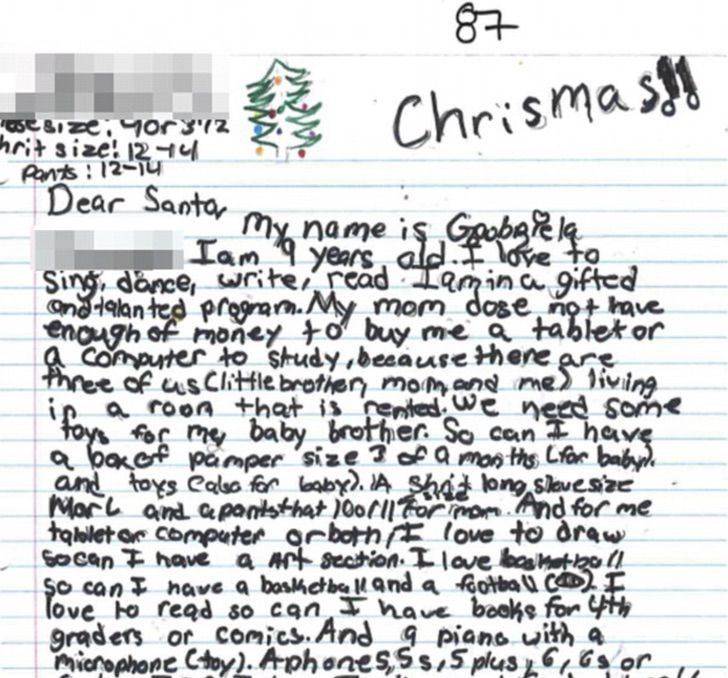 87
Chrismas!!
size: 4 or 3 1/2
hrit size! 12-14
Pants: 12-14
Dear Santa,
My name is
I am 9 years old. I love to
Sing, dance, write, read I am in a gifted
and talanted program. My mom dose not have
enough of money to buy me a tablet or
a computer to study, because there are
three of us (little brother, mom, and me) living
in a roon that is rented. We need some
toys for my baby brother. So can I have
a box of pamper size 3 of 9 months (for baby).
and toys (also for baby). A Shrit long slave size
size
M or L and a pants that 10 or 11 for mom. And for me
tablet or computer or both! I love to draw
so can I have a Art section. I love basketball
so can I have a basketball and a football. I
love to read so can I have books for 4th
graders or comics. And a piano with a
microphone (toy). A phone 5, 5s, 5 plus, 6, 6s or